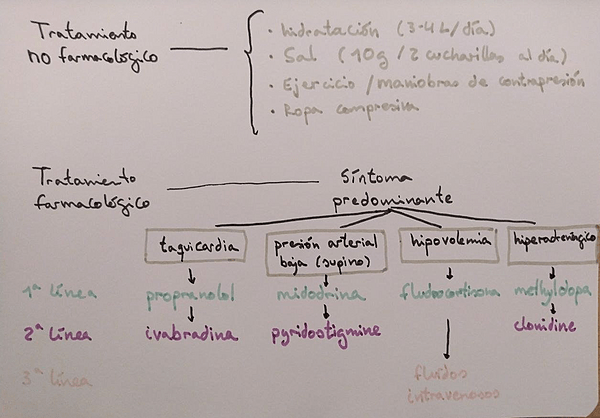 Tratamiento
no farmacológico
· hidratación (3-4L/día)
· Sal (10g/2 cucharillas al día)
· Ejercicio/maniobras de contrapresión
· Ropa compresiva
Tratamiento
farmacológico
Síntoma
predominante
taquicardia
presión arterial
baja (supino)
hipovolemia
hiperadrenérgico
1ª línea
propranolol
midodrina
fludrocortisona
methyldopa
2ª línea
ivabradina
pyridostigmine
clonidine
3ª línea
fluidos
intravenosos